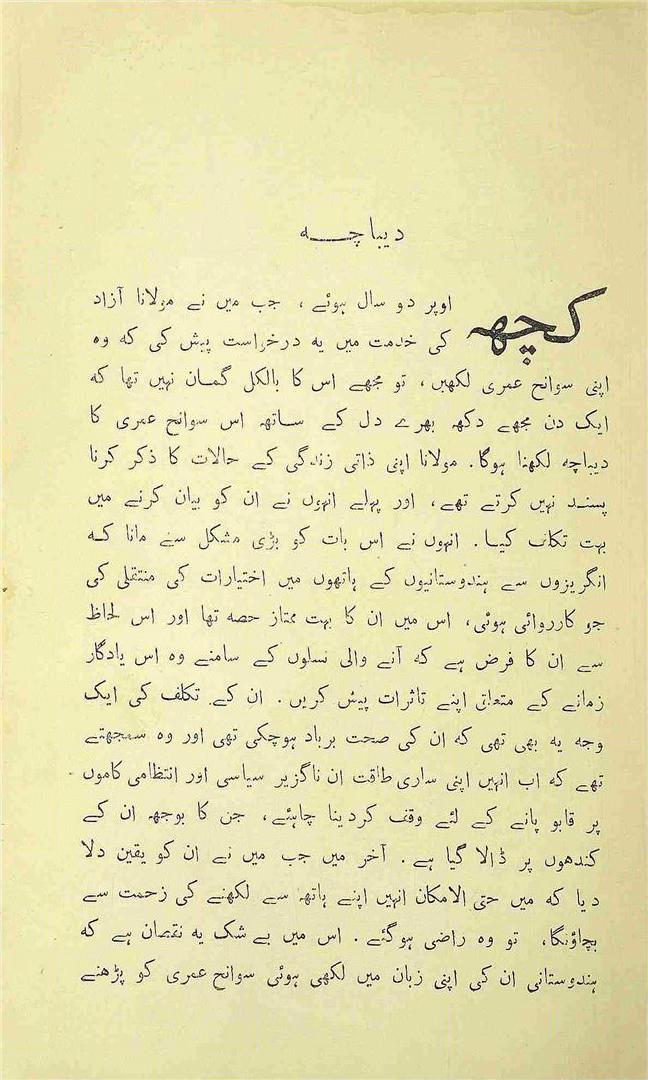 دیباچہ
کچھ اوپر دو سال ہوئے ، جب میں نے مولانا آزاد
کی خدمت میں یہ درخواست پیش کی کہ وہ
اپنی سوانح عمری لکھیں، تو مجھے اس کا بالکل گمان نہیں تھا کہ
ایک دن مجھے دکھ بھرے دل کے ساتھ اس سوانح عمری کا
دیباچہ لکھنا ہوگا۔ مولانا اپنی ذاتی زندگی کے حالات کا ذکر کرنا
پسند نہیں کرتے تھے، اور پہلے انہوں نے ان کو بیان کرنے میں
بہت تکلف کیا۔ انہوں نے اس بات کو بڑی مشکل سے مانا کہ
انگریزوں سے ہندوستانیوں کے ہاتھوں میں اختیارات کی منتقلی کی
جو کارروائی ہوئی، اس میں ان کا بہت ممتاز حصہ تھا اور اس لحاظ
سے ان کا فرض ہے کہ آنے والی نسلوں کے سامنے وہ اس یادگار
زمانے کے متعلق اپنے تاثرات پیش کریں۔ ان کے تکلف کی ایک
وجہ یہ بھی تھی کہ ان کی صحت برباد ہوچکی تھی اور وہ سمجھتے
تھے کہ اب انہیں اپنی ساری طاقت ان ناگزیر سیاسی اور انتظامی کاموں
پر قابو پانے کے لئے وقف کردینا چاہئے، جن کا بوجھ ان کے
کندھوں پر ڈالا گیا ہے۔ آخر میں جب میں نے ان کو یقین دلا
دیا کہ میں حتی الامکان انہیں اپنے ہاتھ سے لکھنے کی زحمت سے
بچاؤنگا، تو وہ راضی ہوگئے۔ اس میں بے شک یہ نقصان ہے کہ
ہندوستانی ان کی اپنی زبان میں لکھی ہوئی سوانح عمری کو پڑھنے